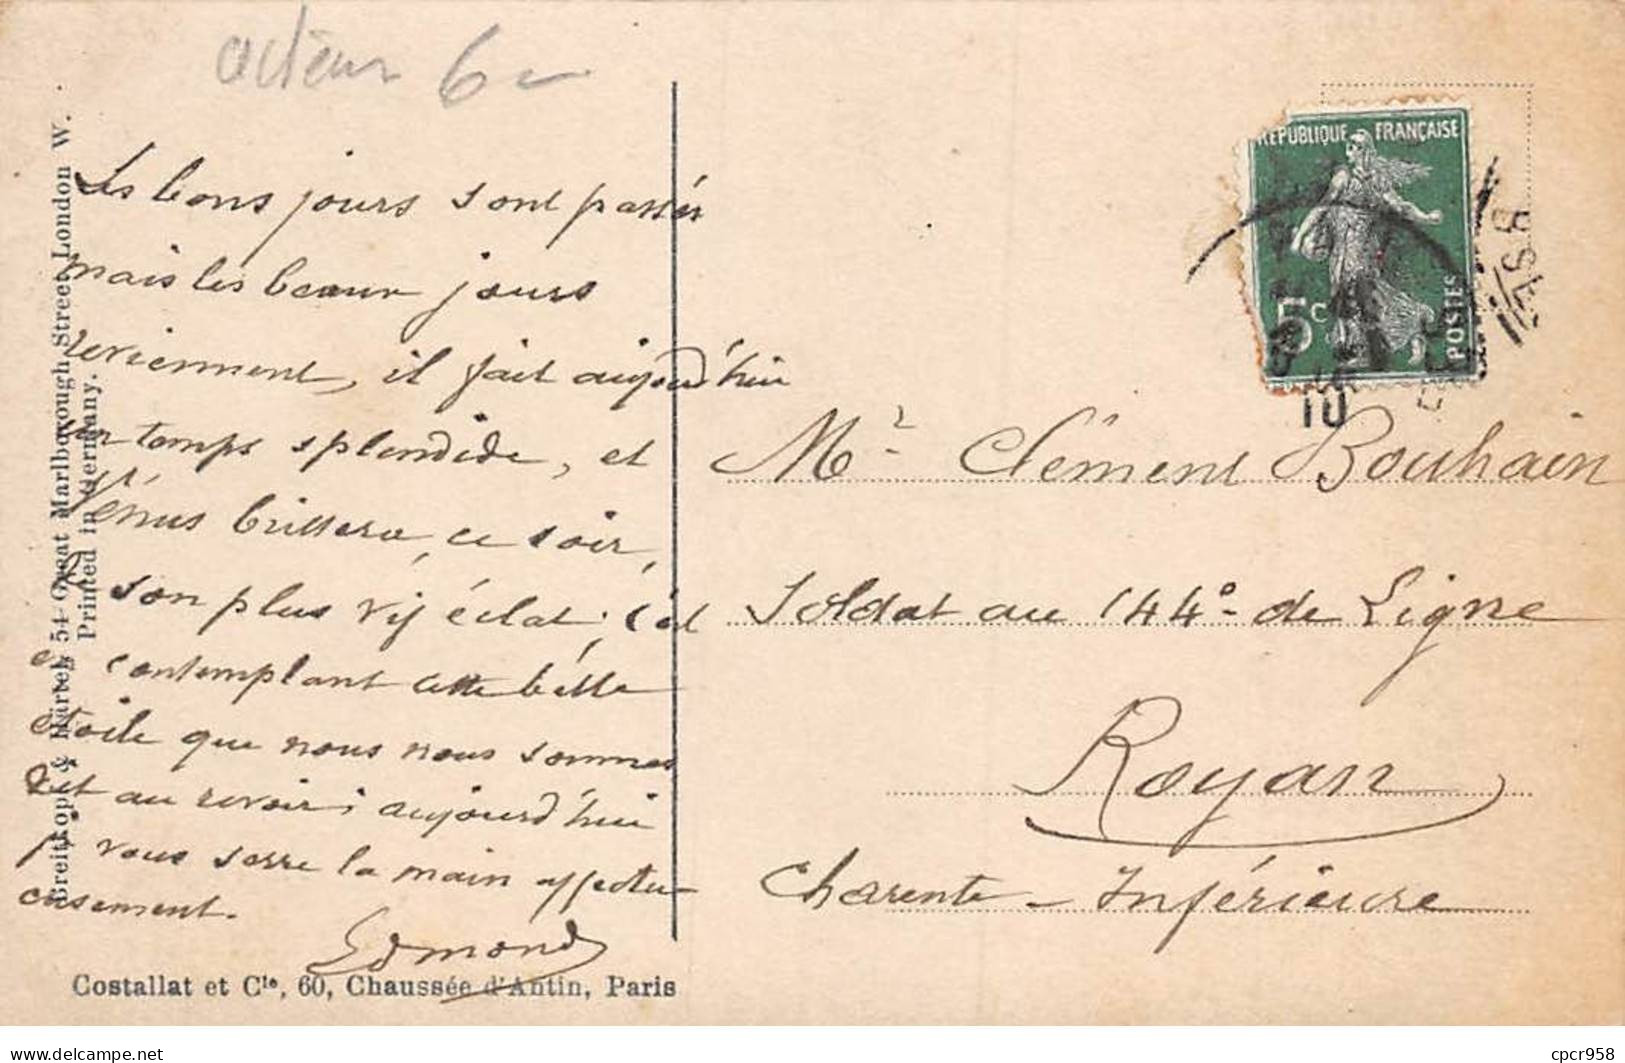 acteur 6
Les bons jours sont passés
mais les beaux jours
reviennent, il fait aujourd'hui
un temps splendide, et
Vénus brillera, ce soir,
de son plus vif éclat; c'est
en contemplant cette belle
étoile que nous nous sommes
dit au revoir; aujourd'hui
je vous serre la main affectu-
eusement.
Edmond
Breitkopf & Härtel, 54 Great Marlborough Street, London W.
Printed in Germany.
Costallat et Cie, 60, Chaussée d'Antin, Paris
RÉPUBLIQUE FRANÇAISE
5c
POSTES
10
Mr Clément Bouhain
Soldat au 144e de Ligne
Royan
Charente-Inférieure
www.delcampe.net
cpcr958